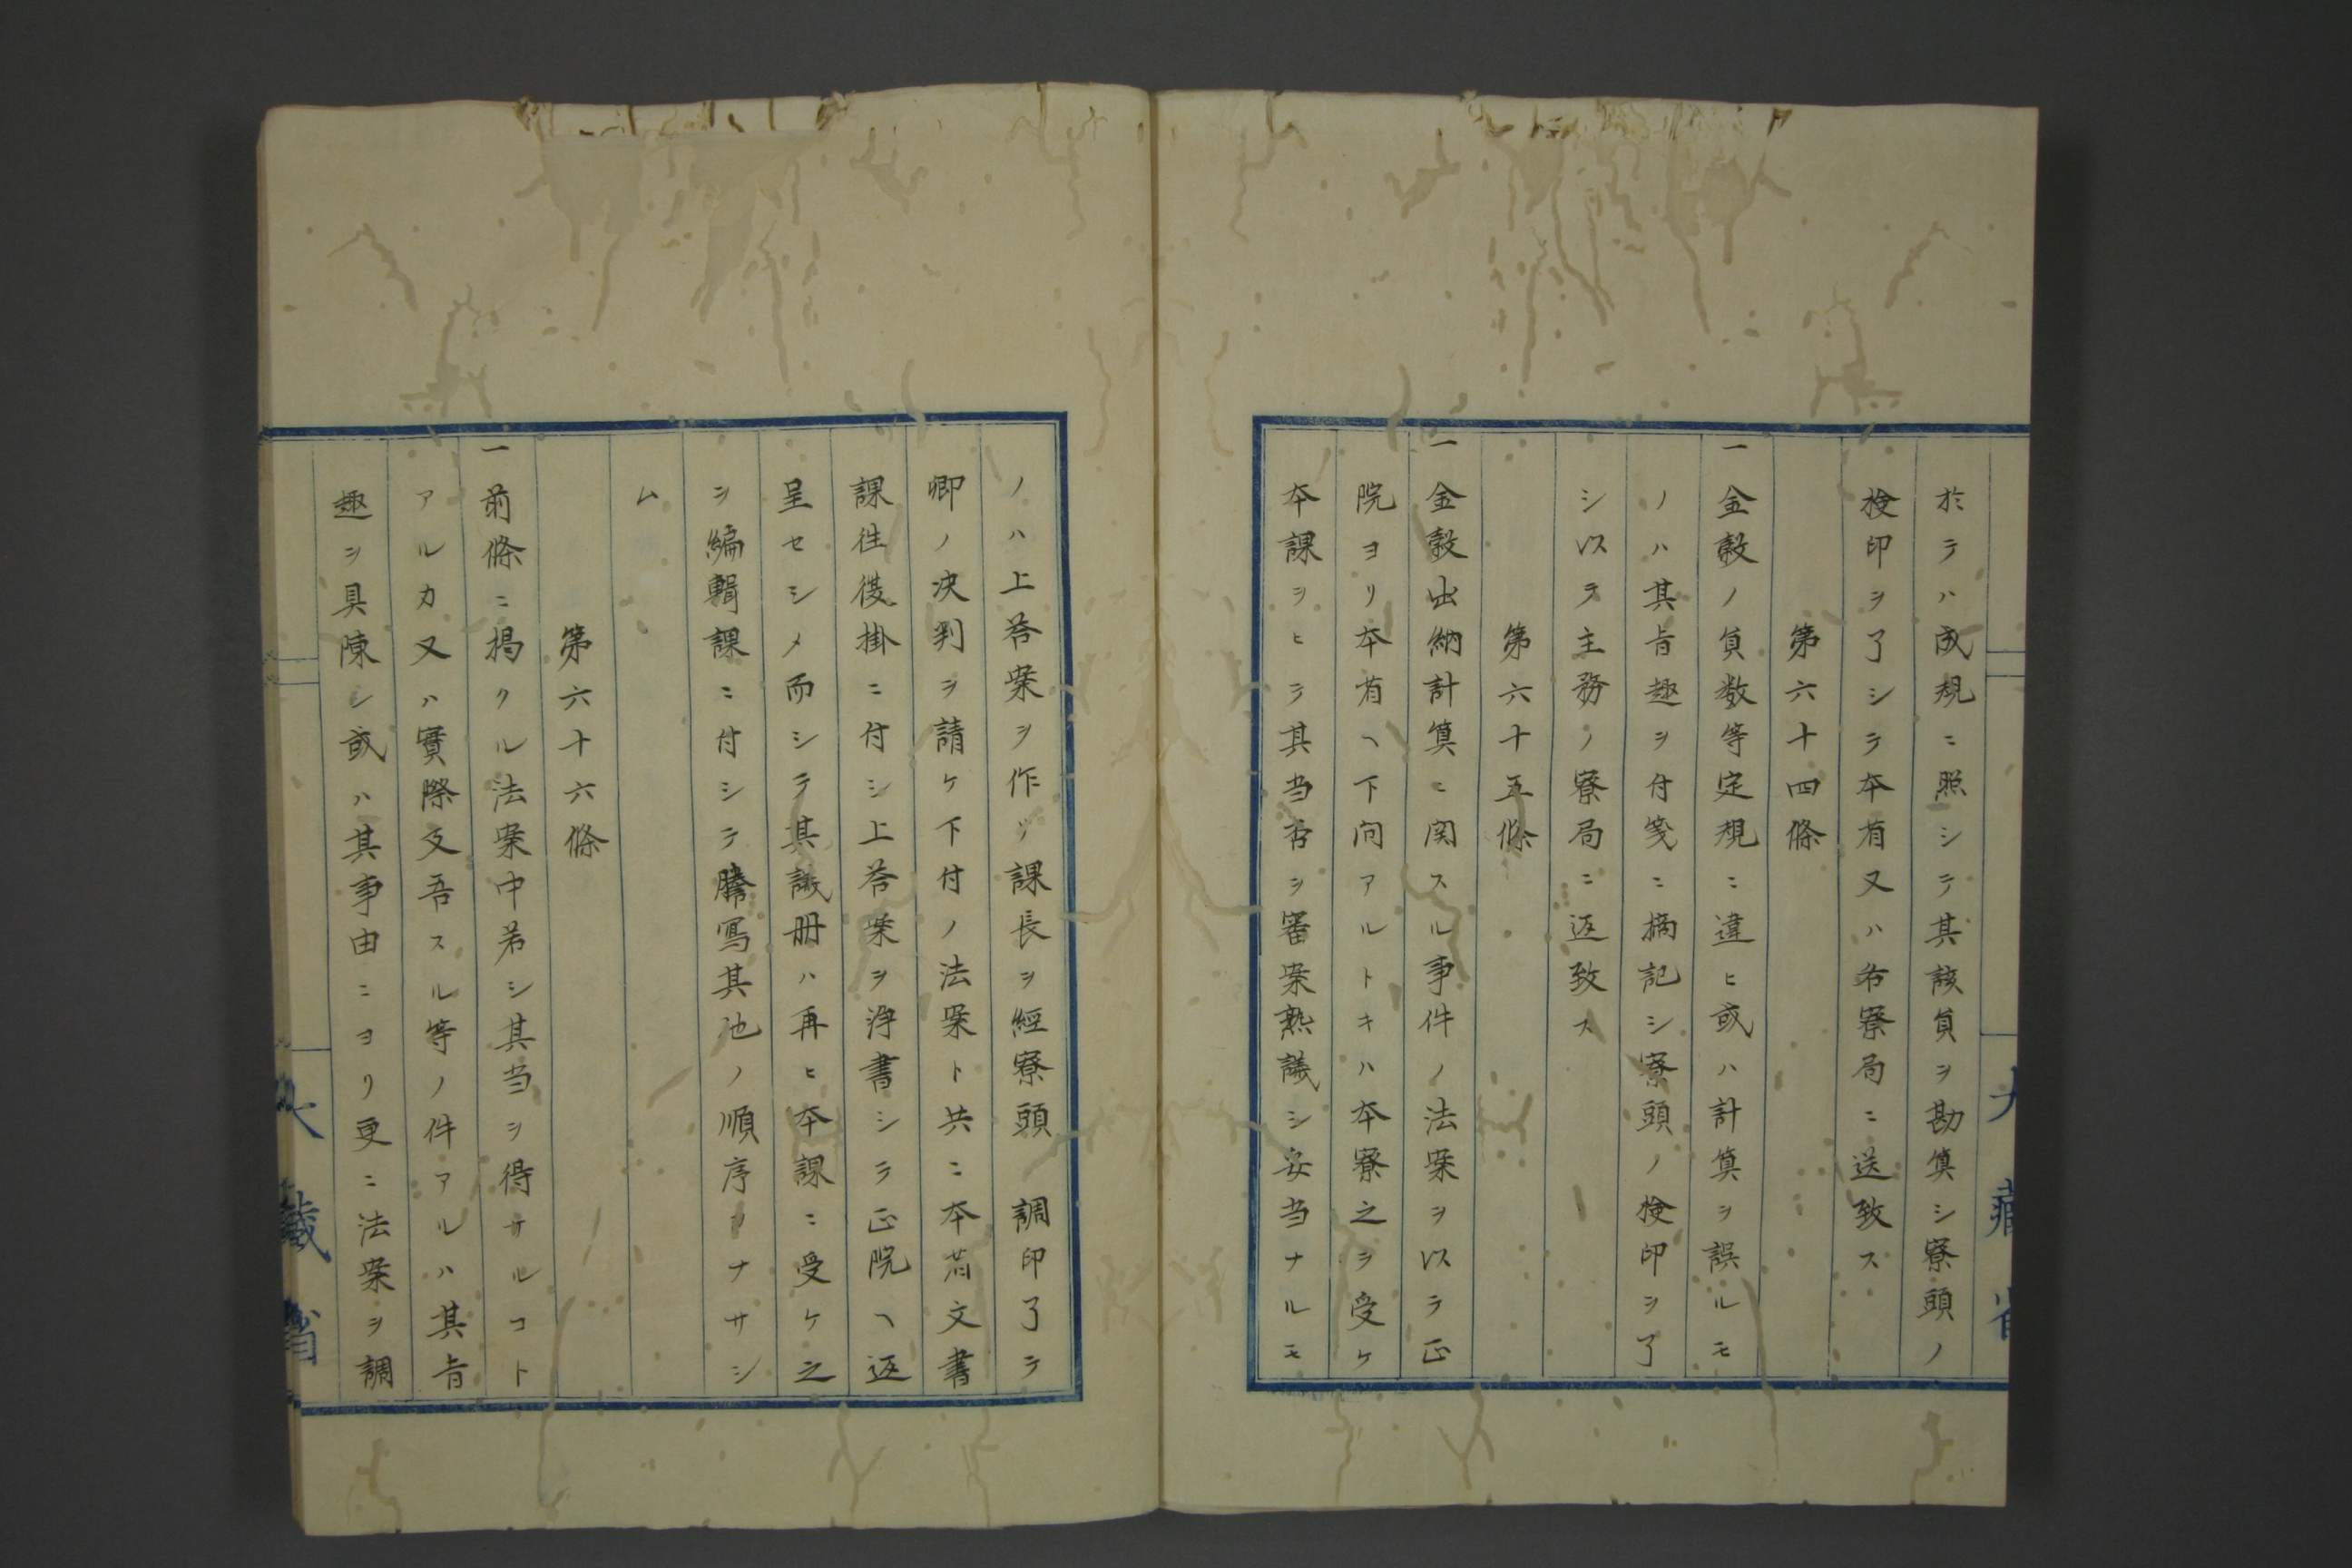 於テハ成規ニ照シテ其該負ヲ勘算シ寮頭ノ
検印ヲ了シテ本省又ハ各寮局ニ送致ス
第六十四條
一金穀ノ負数等定規ニ違ヒ或ハ計算ヲ誤ルモ
ノハ其旨趣ヲ付箋ニ摘記シ寮頭ノ検印ヲ了
シ以テ主務ノ寮局ニ返致ス
第六十五條
一金穀出納計算ニ関スル事件ノ法案ヲ以テ正
院ヨリ本省ヘ下問アルトキハ本寮之ヲ受ケ
本課ヲヒテ其当否ヲ審案熟議シ妥当ナルモ
大藏省
ノハ上荅案ヲ作リ課長ヲ經寮頭調印了テ
卿ノ决判ヲ請ケ下付ノ法案ト共ニ本省文書
課往復掛ニ付シ上荅案ヲ浄書シテ正院ヘ返
呈セシメ而シテ其議册ハ再ヒ本課ニ受ケ之
ヲ編輯課ニ付シテ謄寫其他ノ順序ヲナサシ
ム
第六十六條
一前條ニ掲クル法案中若シ其当ヲ得サルコト
アルカ又ハ實際支吾スル等ノ件アルハ其旨
趣ヲ具陳シ或ハ其事由ニヨリ更ニ法案ヲ調
大藏省